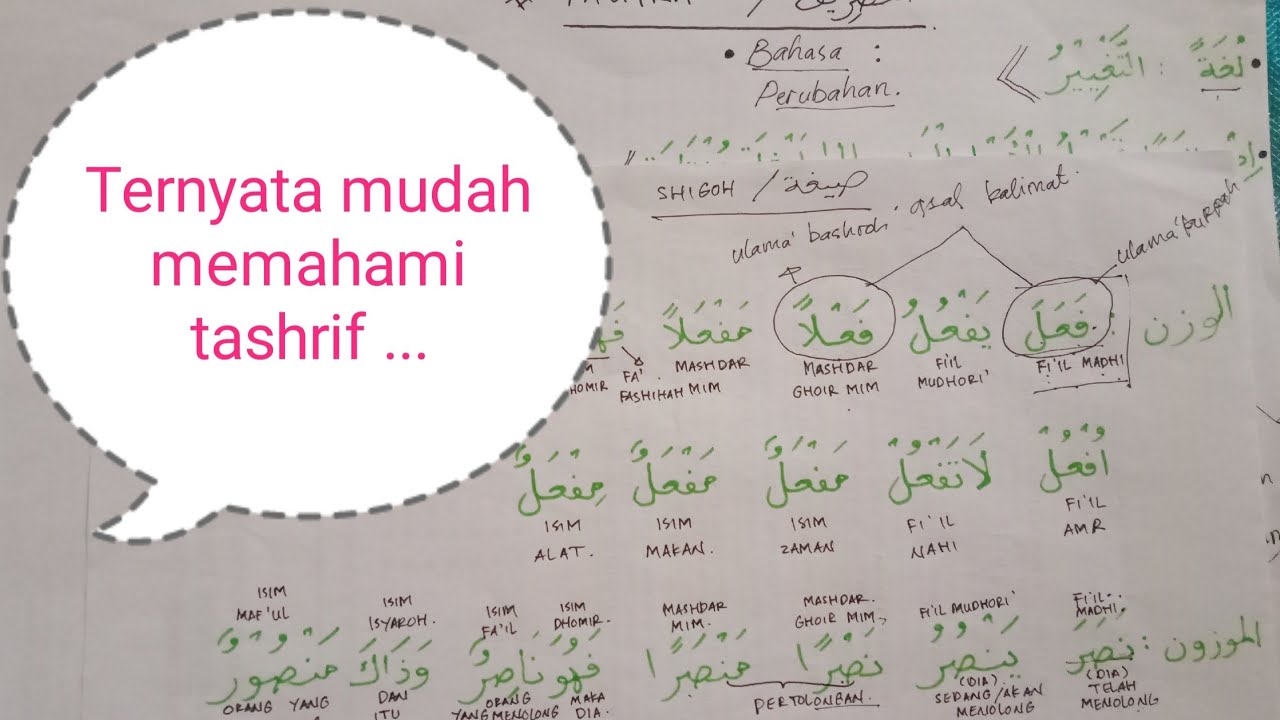 Ternyata mudah
memahami
tashrif ...
• Bahasa :
Perubahan.
• لُغَةً : التَّغْيِيْرُ
SHIGOH / صيغة
ulama' bashroh . asal kalimat.
الوزن : فَعَلَ يَفْعُلُ فَعْلاً مَفْعَلاً
FI'IL MADHI
FI'IL MUDHORI'
MASHDAR GHOIR MIM
MASHDAR MIM
FA' FASHIHAH
اُفْعُلْ لَاتَفْعُلْ مَفْعَلٌ مَفْعَلٌ مِفْعَلٌ
FI'IL AMR
FI'IL NAHI
ISIM ZAMAN
ISIM MAKAN.
ISIM ALAT.
FI'IL MADHI.
FI'IL MUDHORI'
MASHDAR. GHOIR MIM
MASHDAR MIM.
ISIM DHOMIR.
ISIM FA'IL
ISIM ISYAROH.
ISIM MAF'UL
الموزون : نَصَرَ يَنْصُرُ نَصْرًا مَنْصَرًا فَهُوَ نَاصِرٌ وَذَاكَ مَنْصُوْرٌ
(DIA) TELAH MENOLONG
(DIA) SEDANG/AKAN MENOLONG
PERTOLONGAN.
MAKA DIA.
ORANG YANG MENOLONG
DAN ITU
ORANG YANG